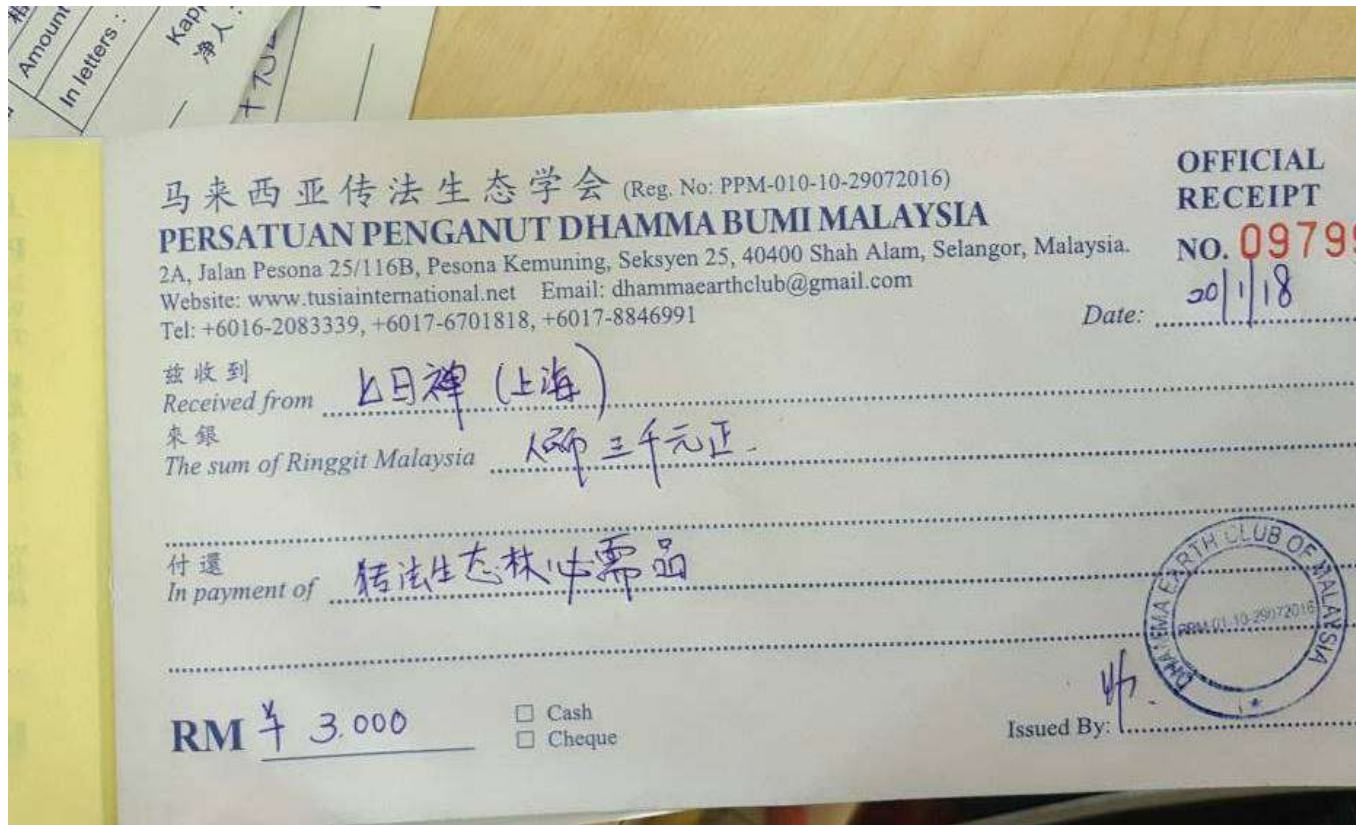 Amount
In letters :
净人 :
马来西亚传法生态学会 (Reg. No: PPM-010-10-29072016)
PERSATUAN PENGANUT DHAMMA BUMI MALAYSIA
2A, Jalan Pesona 25/116B, Pesona Kemuning, Seksyen 25, 40400 Shah Alam, Selangor, Malaysia.
Website: www.tusiainternational.net Email: dhammaearthclub@gmail.com
Tel: +6016-2083339, +6017-6701818, +6017-8846991
OFFICIAL
RECEIPT
NO. 09799
Date: 20/1/18
兹收到
Received from 七日禅 (上海)
來銀
The sum of Ringgit Malaysia 人民币三千元正.
付還
In payment of 法生态林必需品
RM ¥ 3.000
Cash
Cheque
Issued By:
DHAMMA EARTH CLUB OF MALAYSIA